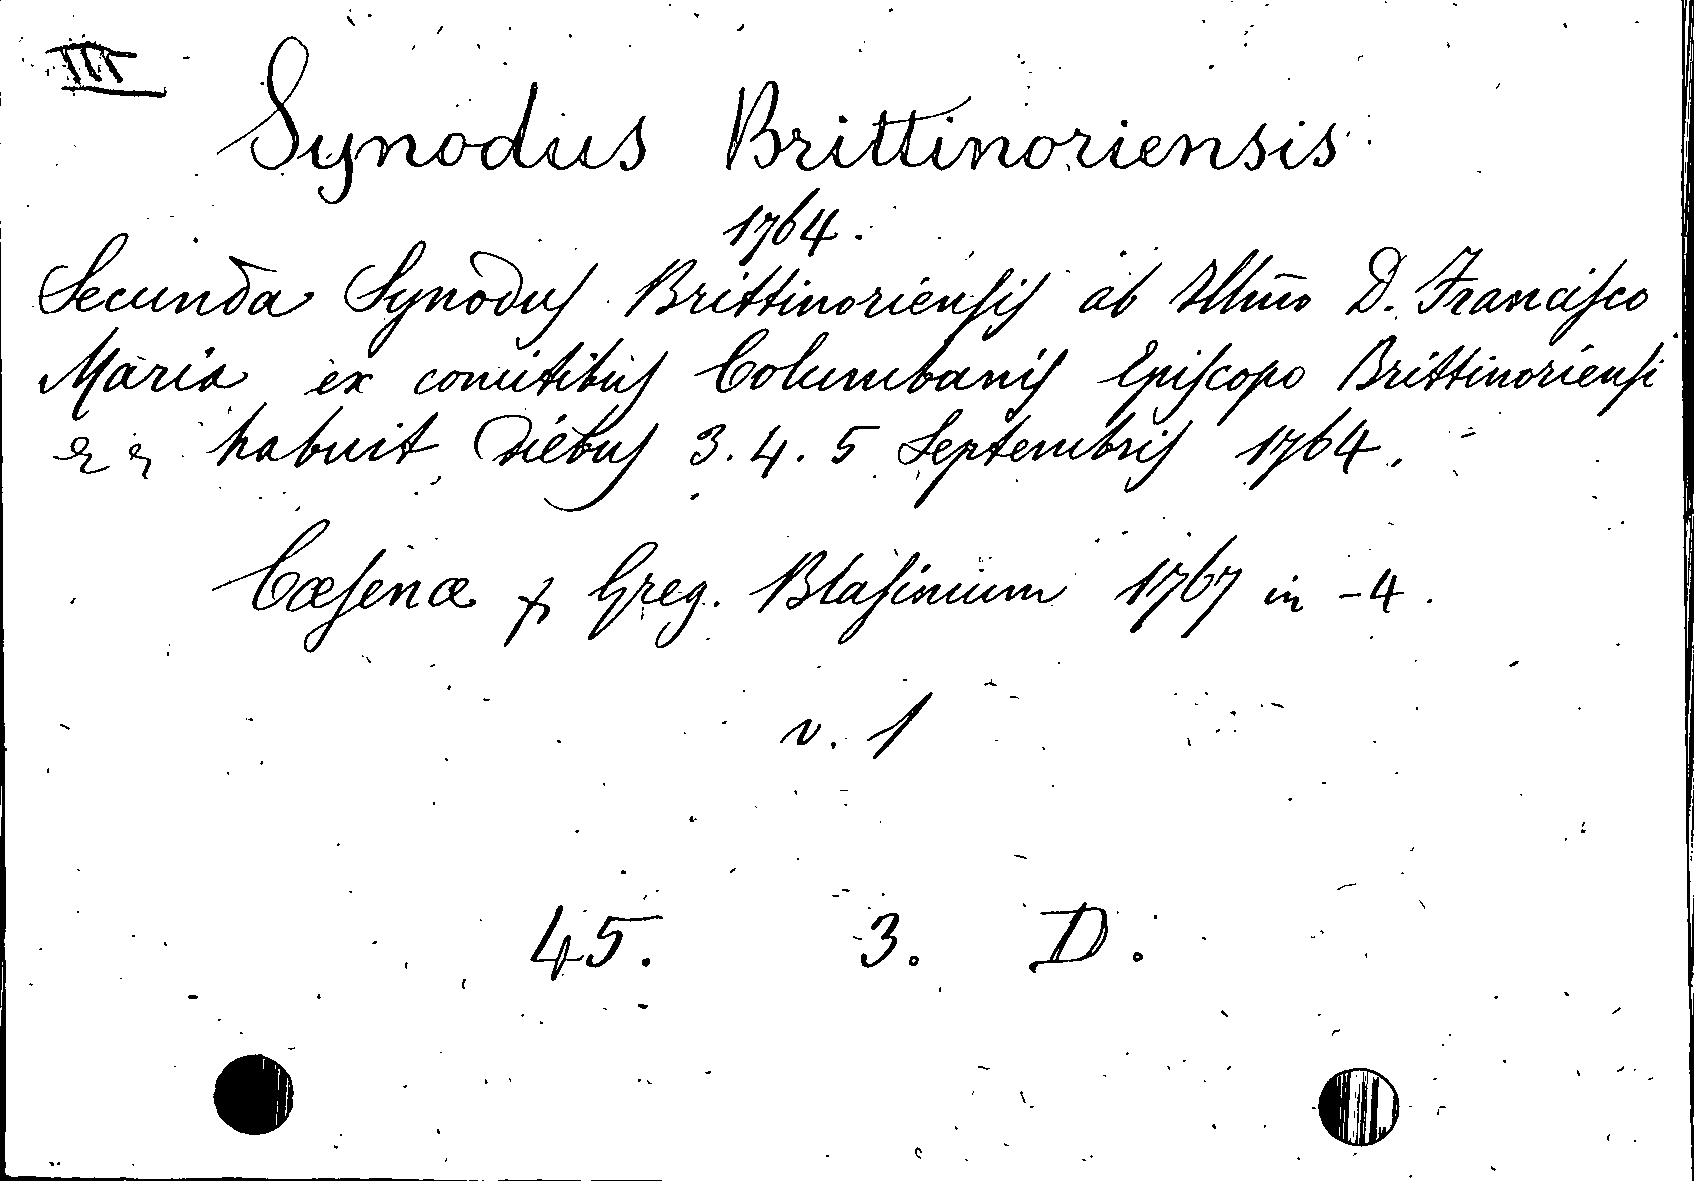 III
Synodus Brittinoriensis
1764.
Secunda Synodus Brittinoriensis ab Illm̃o D. Francisco
Maria ex comitibus Columbanis Episcopo Brittinoriensi
habuit diebus 3. 4. 5 Septembris 1764.
Cæsenæ Greg. Blasinium 1767 in - 4.
v. 1
45. 3. D.